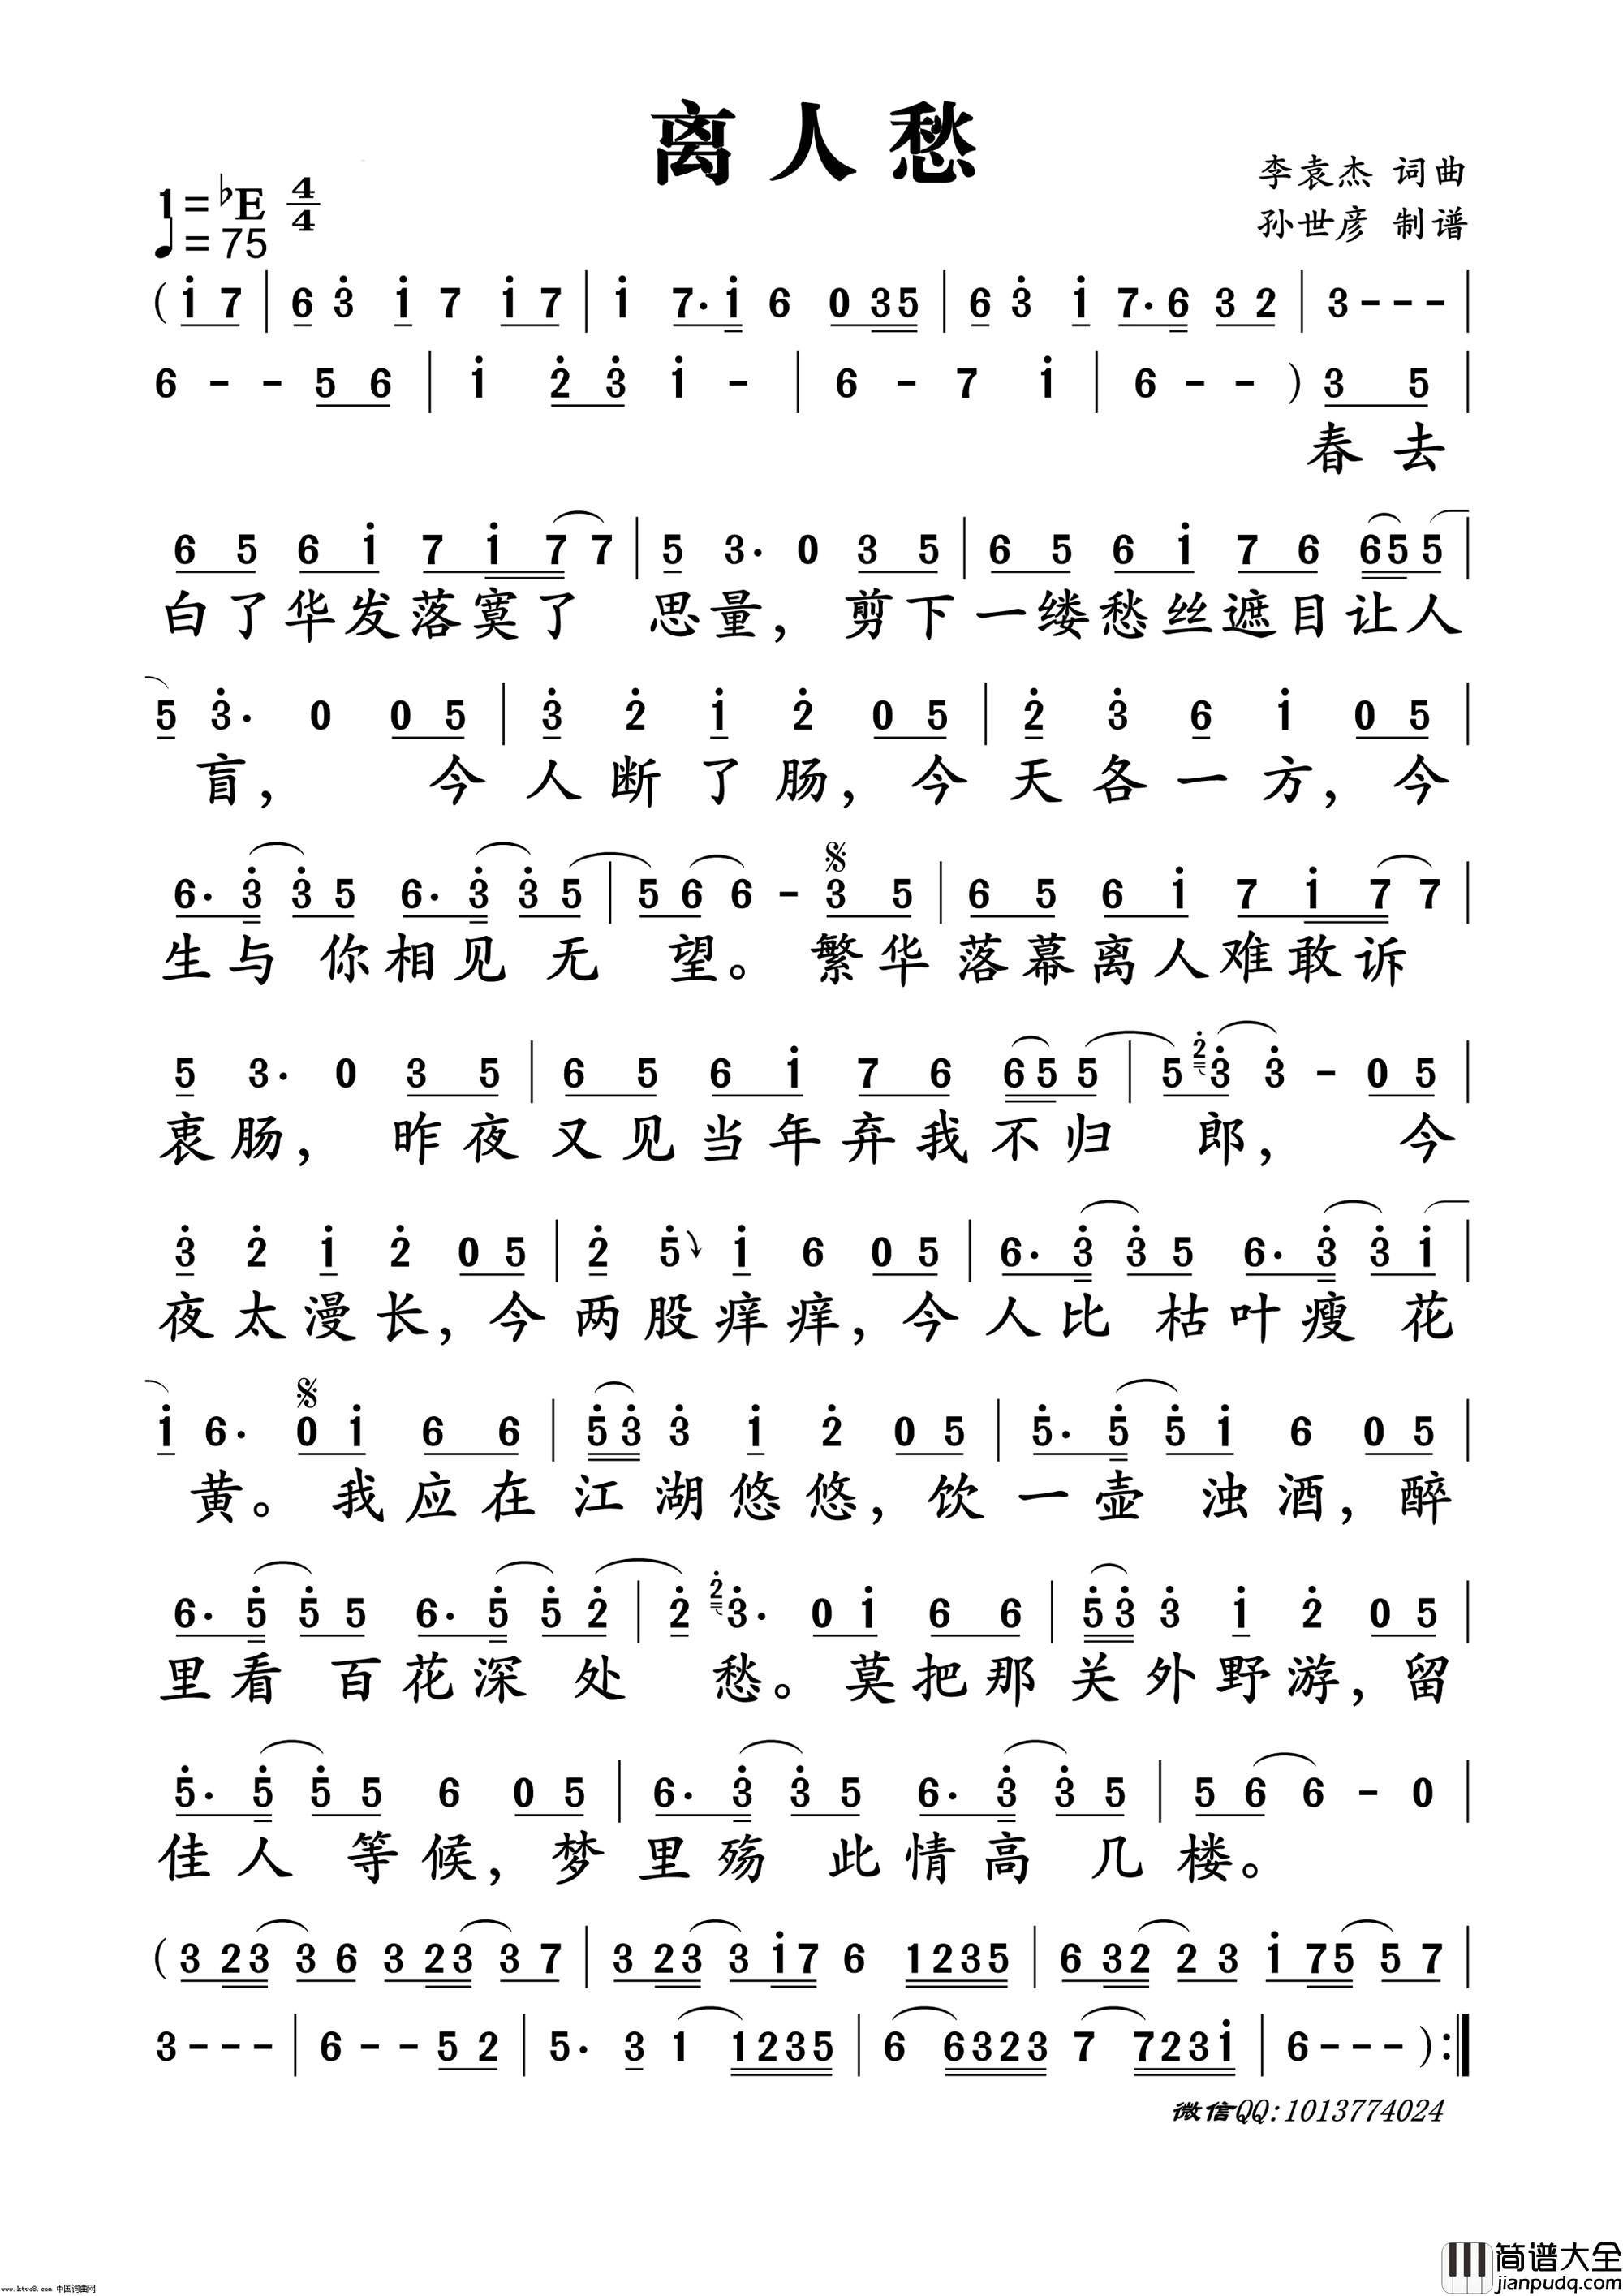 离人愁
李袁杰 词曲
1=♭E 4/4
孙世彦 制谱
♩=75
(i 7 | 6 3̇ i 7 i 7 | i 7· i 6 0 3 5 | 6 3̇ i 7· 6 3 2 | 3 - - - |
6 - - 5 6 | i 2̇ 3̇ i - | 6 - 7 i | 6 - - ) 3 5 |
春去
6 5 6 i 7 i 7 7 | 5 3· 0 3 5 | 6 5 6 i 7 6 6 5 5 |
白了华发落寞了 思量，剪下一缕愁丝遮目让人
5 3̇· 0 0 5 | 3̇ 2̇ i 2̇ 0 5 | 2̇ 3̇ 6 i 0 5 |
盲， 今人断了肠，今天各一方，今
6· 3̇ 3̇ 5 6· 3̇ 3̇ 5 | 5 6 6 - 𝄋 3 5 | 6 5 6 i 7 i 7 7 |
生与 你相见 无 望。繁华落幕离人难敢诉
5 3· 0 3 5 | 6 5 6 i 7 6 6 5 5 | 5 2̇ 3̇ 3̇ - 0 5 |
衷肠， 昨夜又见当年弃我不归 郎， 今
3̇ 2̇ i 2̇ 0 5 | 2̇ 5̇ i 6 0 5 | 6· 3̇ 3̇ 5 6· 3̇ 3̇ i |
夜太漫长，今两股痒痒，今人比 枯叶瘦 花
i 6· 𝄋 0 i 6 6 | 5̇ 3̇ 3̇ i 2̇ 0 5 | 5̇· 5̇ 5̇ i 6 0 5 |
黄。 我应在江湖悠悠，饮一壶 浊酒，醉
6· 5̇ 5̇ 5 6· 5̇ 5̇ 2̇ | 2̇ 2̇ 3̇· 0 i 6 6 | 5̇ 3̇ 3̇ i 2̇ 0 5 |
里看 百花深 处 愁。莫把那关外野游，留
5̇· 5̇ 5̇ 5 6 0 5 | 6· 3̇ 3̇ 5 6· 3̇ 3̇ 5 | 5 6 6 - 0 |
佳人 等候，梦里殇 此情高 几楼。
(3 2 3 3 6 3 2 3 3 7 | 3 2 3 3 i 7 6 1 2 3 5 | 6 3 2 2 3 i 7 5 5 7 |
3 - - - | 6 - - 5 2 | 5· 3 1 1 2 3 5 | 6 6 3 2 3 7 7 2 3 i | 6 - - - ) :‖
微信QQ:1013774024
简谱大全
jianpudq.com
www.ktvc8.com 中国词曲网